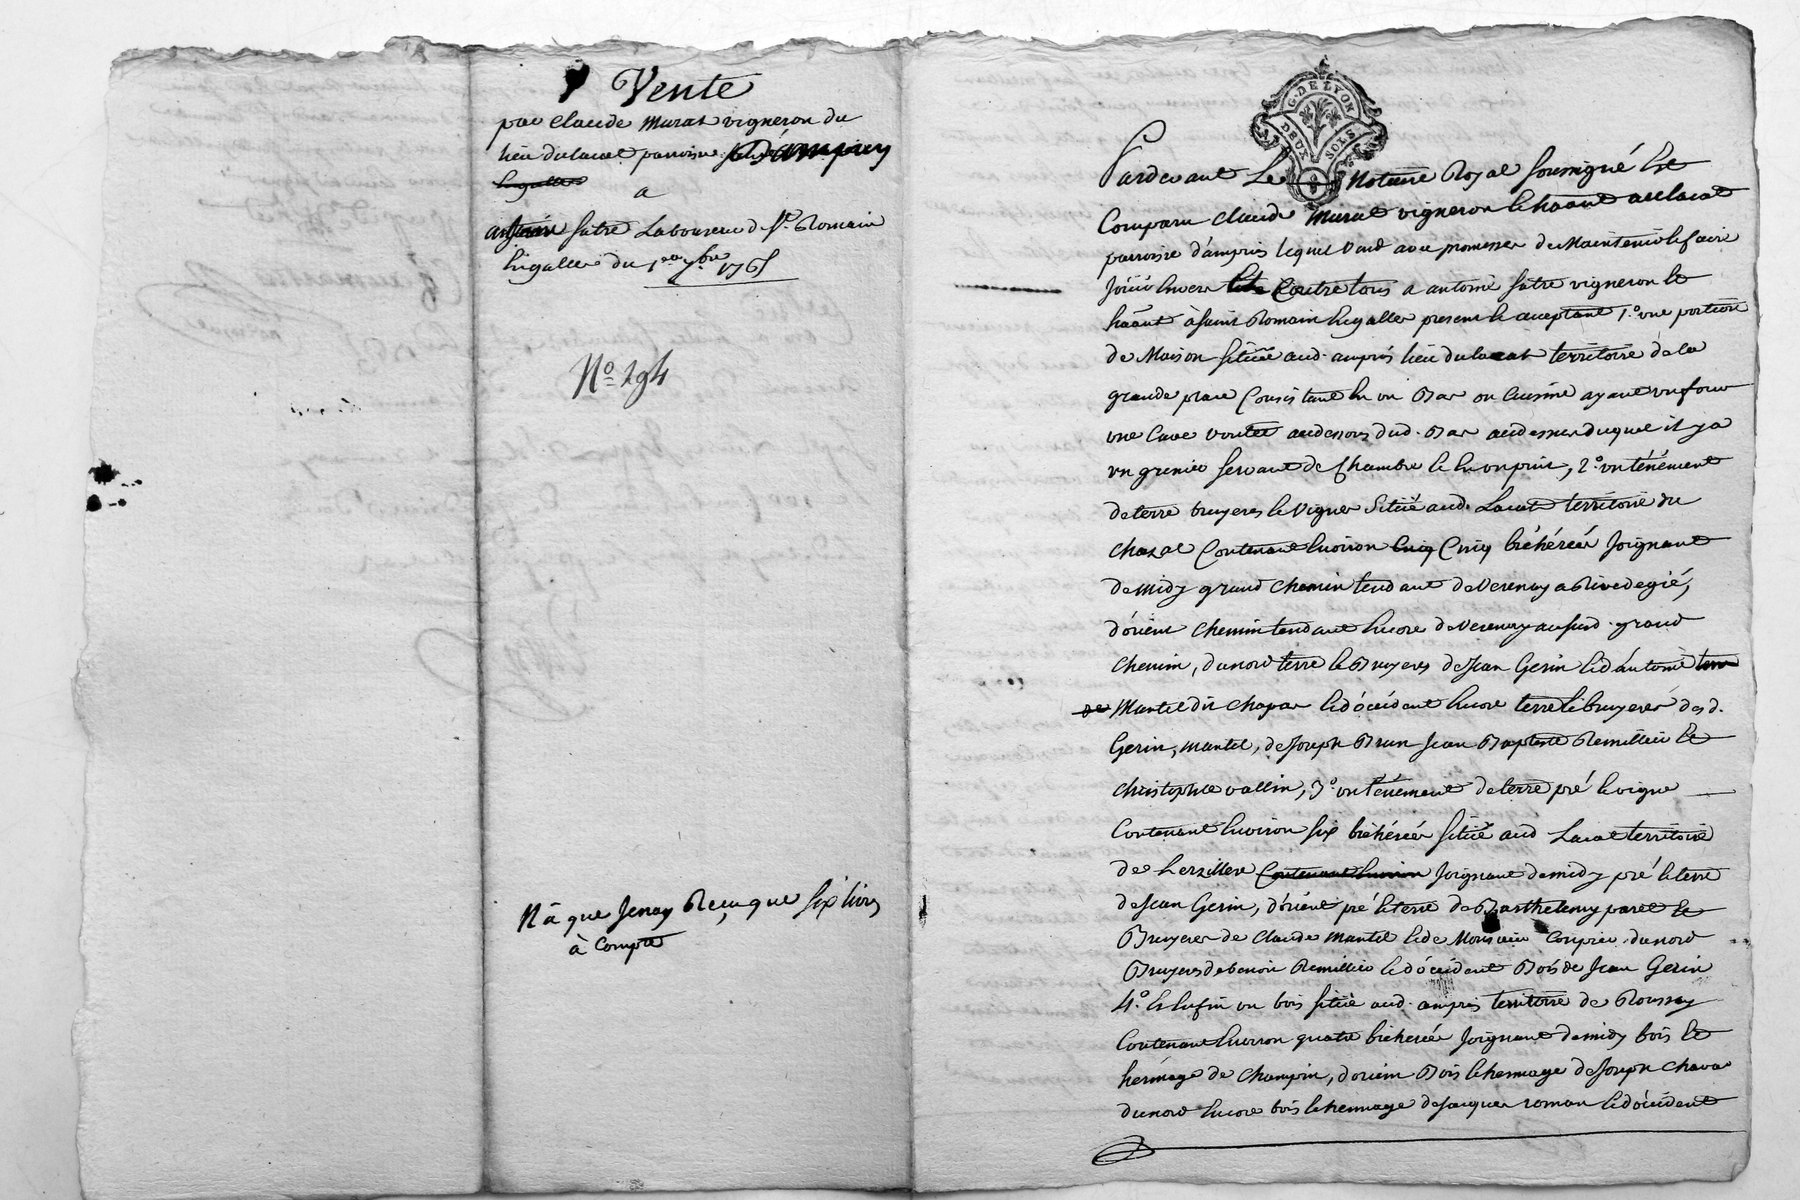 Vente
par claude murat vigneron du
lieu du lacat parroisse d'ampuis
a
antoine satre Laboureur de St. Romain
Engallier du 1er 7bre 1765
No. 294
N'a que Jenay Reçu que six livres
à compte
G. DE LYON
DEUX SOLS
Pardevant Le Notaire Royal soussigné Est
Comparu claude Murat vigneron habitant au lacat
parroisse d'ampuis lequel vend avec promesse de Maintenir et faire
joüir Envers Et Contre tous a antoine satre vigneron
habitant à saint Romain Engallier present Et acceptant 1.o une portion
de Maison sitüée aud. ampuis lieu du lacat territoire de la
grande place Consistant En un Bas ou cuisine ayant un four
une Cave voutée audessous dud. Bas audessus duquel il y a
un grenier servant de Chambre Et Enconpint, 2.o un ténement
de terre bruyeres Et Vignes Sitüé aud. Lacat territoire du
chazal Contenant Environ Cinq bichérées Joignant
de midy grand chemin tendant de Verenay a Rivedegié,
d'orient chemin tendant Encore de Verenay au susd. grand
chemin, du nord terre Et Bruyeres de Jean Gerin Et d'antoine
Mantel dit chapas Et d'occident Encore terre Et bruyeres desd.
Gerin, mantel, de Joseph Brun Jean Baptiste Remillieu Et
christophle vallin, 3.o un ténement de terre pré Et vigne
Contenant Environ six bichérées sitüé aud Lacat territoire
de Joignant de midy pré Et terre
de Jean Gerin, d'orient pré Et terre de Barthelemy Et
Bruyeres de claude mantel Et de Monsieur du nord
Bruyeres de benoit Remillieu Et d'occident Bois de Jean Gerin
4.o Et Enfin un bois sitüé aud. ampuis territoire de Roussey
Contenant Environ quatre bichérées Joignant de midy bois Et
hermage de champin, d'orient Bois Et hermage de Joseph chavas
du nord Encore bois Et hermage de Jacques roman Et d'occident